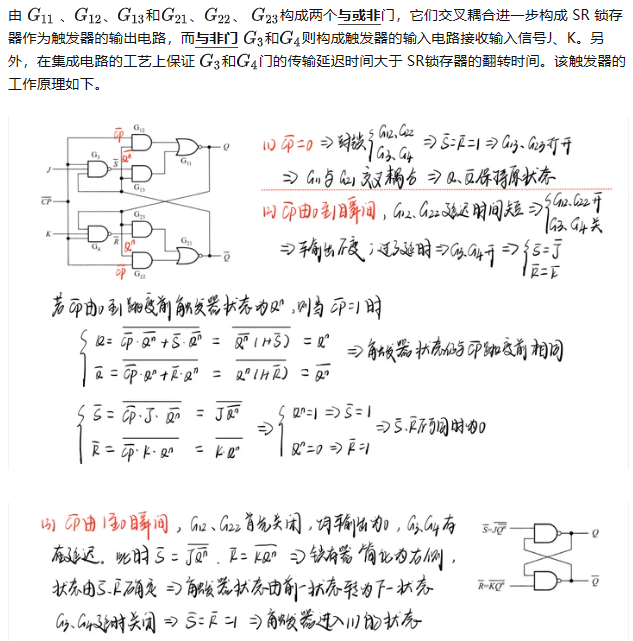 由 G₁₁ 、G₁₂、G₁₃和G₂₁、G₂₂、 G₂₃构成两个与或非门，它们交叉耦合进一步构成 SR 锁存
器作为触发器的输出电路，而与非门 G₃和G₄则构成触发器的输入电路接收输入信号J、K。另
外，在集成电路的工艺上保证 G₃和G₄门的传输延迟时间大于 SR锁存器的翻转时间。该触发器的
工作原理如下。
C̅P̅ G₁₂
G₃ S̅ Q̅ⁿ G₁₁ Q
J
G₁₃
C̅P̅
G₂₃
K G₄ R̅ Qⁿ G₂₁ Q̅
C̅P̅ G₂₂
(1) C̅P̅=0 ⇒ 封锁{G₁₂、G₂₂ G₃、G₄ ⇒ S̅=R̅=1 ⇒ G₁₃、G₂₃打开
⇒ G₁₁与G₂₁交叉耦合 ⇒ Q、Q̅保持原状态
(2) C̅P̅由0到1瞬间, G₁₂、G₂₂延迟时间短 ⇒ {G₁₂、G₂₂开 G₃、G₄关
⇒ 输出不变；过了延时 ⇒ G₃、G₄开 ⇒ {S̅=J̅ R̅=K̅
若C̅P̅由0到1跳变前触发器状态为Qⁿ, 则当 C̅P̅=1时
Q = \overline{C̅P̅·Q̅ⁿ + S̅·Q̅ⁿ} = \overline{Q̅ⁿ(1+S̅)} = Qⁿ ⇒ 触发器状态仍与C̅P̅跳变前相同
Q̅ = \overline{C̅P̅·Qⁿ + R̅·Qⁿ} = \overline{Qⁿ(1+R̅)} = Q̅ⁿ
S̅ = \overline{C̅P̅·J·Q̅ⁿ} = \overline{JQ̅ⁿ} ⇒ {Qⁿ=1 ⇒ S̅=1 ⇒ S̅、R̅不同时为0
R̅ = \overline{C̅P̅·K·Qⁿ} = \overline{K·Qⁿ} Qⁿ=0 ⇒ R̅=1
(3) C̅P̅由1到0瞬间, G₁₂、G₂₂首先关闭, 均输出为0, G₃、G₄存
在延迟。此时 S̅ = \overline{JQ̅ⁿ}、R̅ = \overline{KQⁿ} ⇒ 锁存器简化为右侧,
状态由S̅、R̅确定 ⇒ 触发器状态由前一状态转为下一状态
G₃、G₄延时关闭 ⇒ S̅=R̅=1 ⇒ 触发器进入(1)的状态
S̅=\overline{JQ̅ⁿ} Q
R̅=\overline{KQⁿ} Q̅